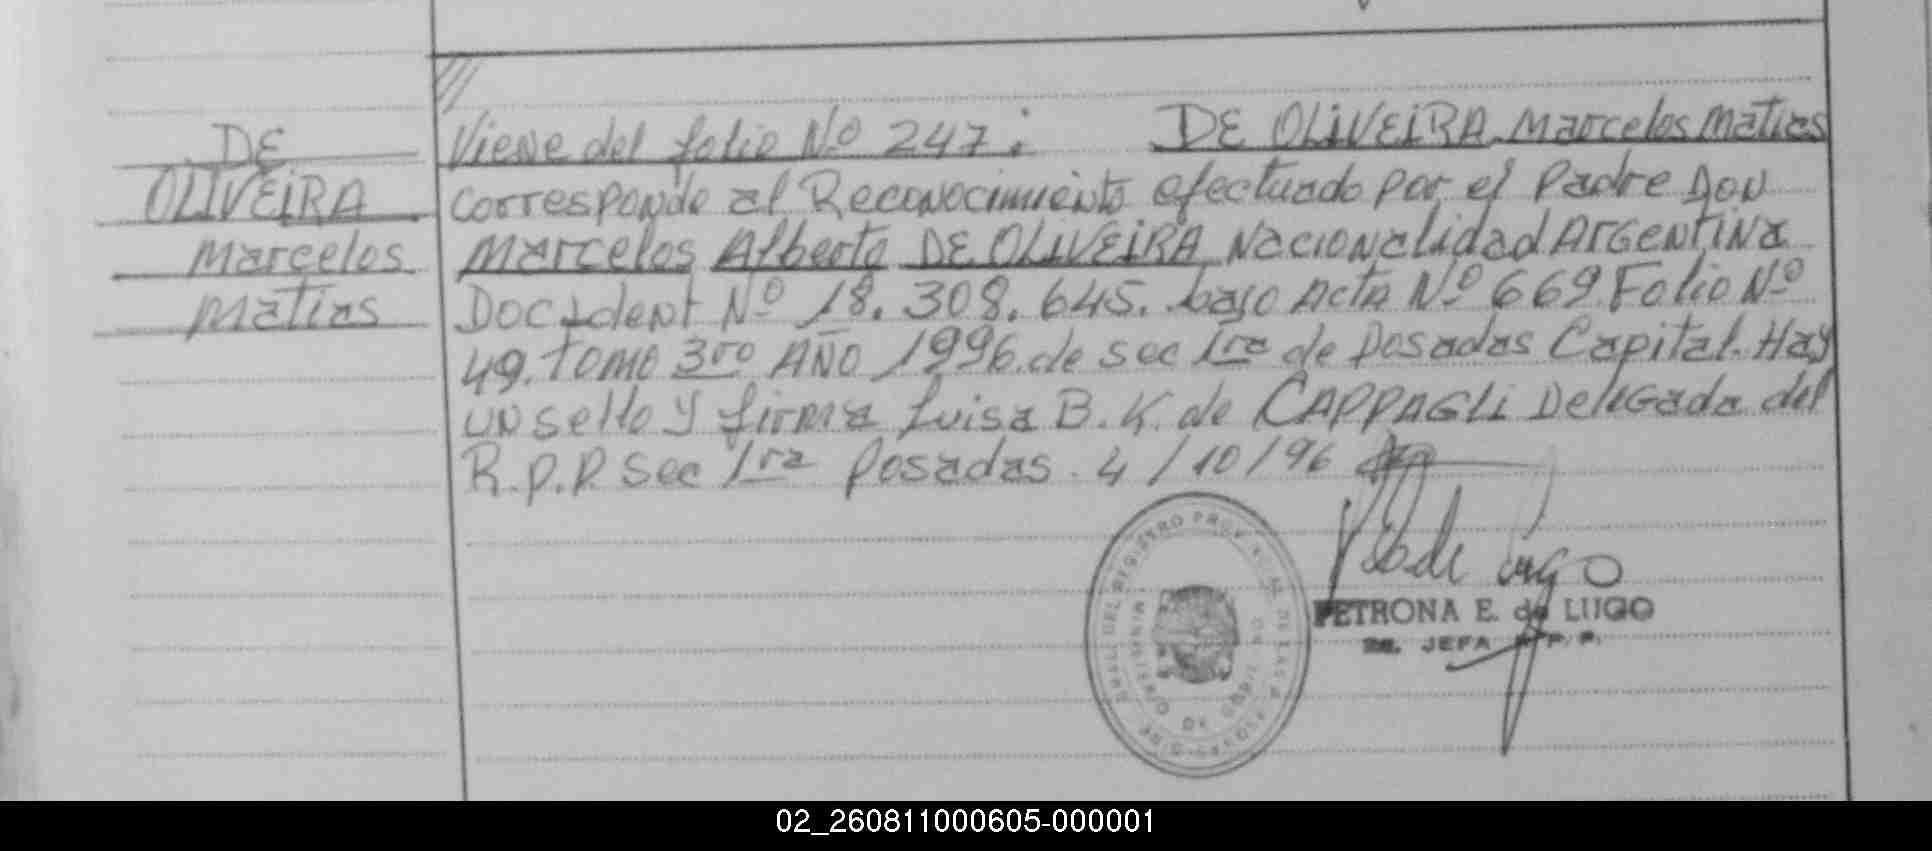 DE
OLIVEIRA
Marcelos
Matias
Viene del folio Nº 247: DE OLIVEIRA Marcelos Matias
Corresponde al Reconocimiento efectuado por el Padre DON
Marcelos Alberto DE OLIVEIRA Nacionalidad ARGENTINA
Doc Ident Nº 18.308.645. bajo Acta Nº 669 Folio Nº
49. tomo 3ro AÑO 1996. de sec 1ra de Posadas Capital. Hay
un sello y firma Luisa B. K. de CAPPAGLI Delegada del
R.P.P. Sec 1ra Posadas. 4/10/96
REGISTRO PROV
MINISTERIO DE
PETRONA E. de LUGO
JEFA R.P.P.
02_260811000605-000001